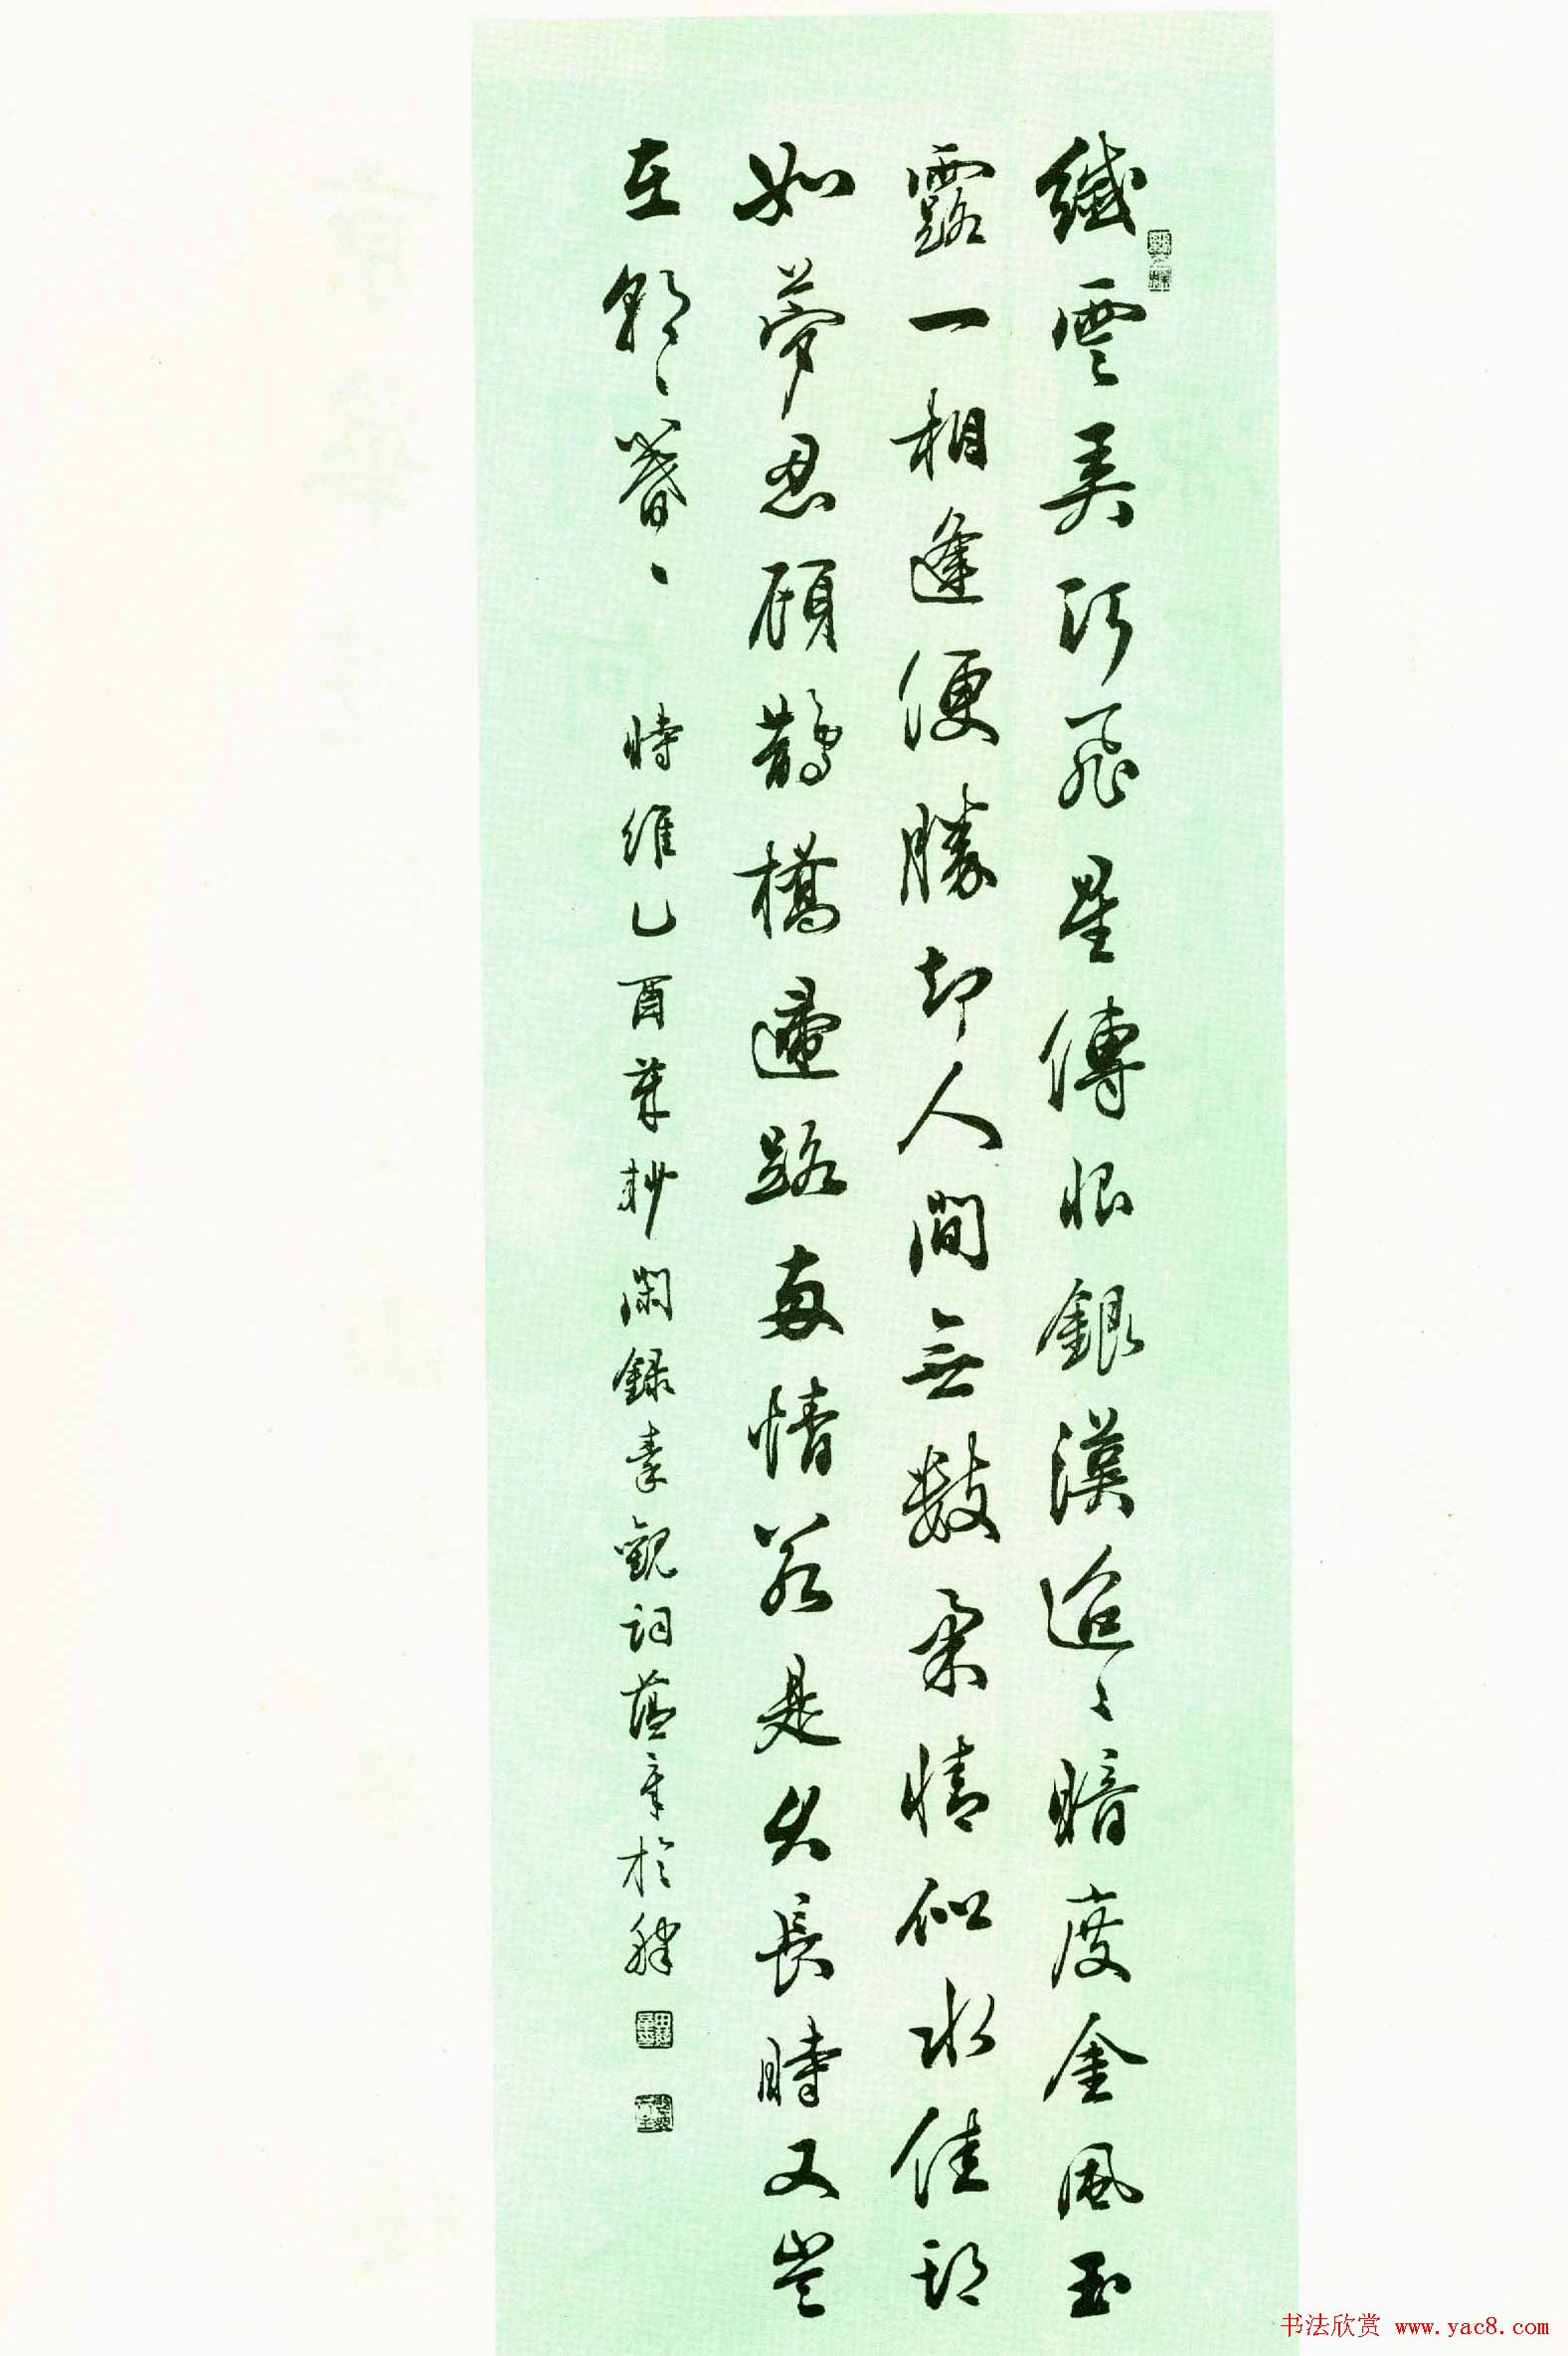 纖雲弄巧飛星傳恨銀漢迢々暗度金風玉
露一相逢便勝却人間無數柔情似水佳期
如夢忍顧鵲橋歸路兩情若是久長時又豈
在朝々暮々 時維乙酉閑錄秦觀詞於
书法欣赏 www.yac8.com